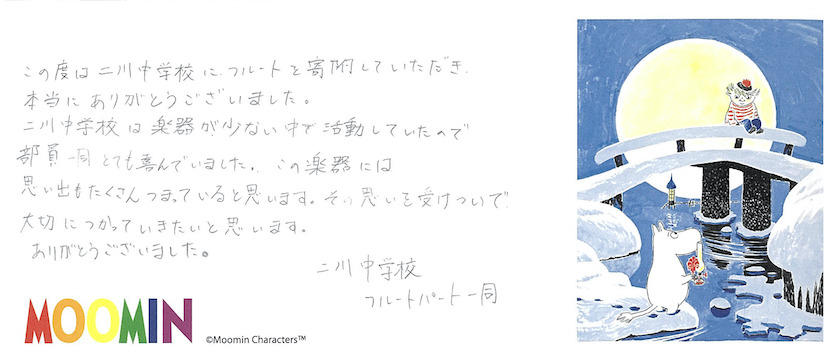 この度は二川中学校に、フルートを寄附していただき、
本当にありがとうございました。
二川中学校は楽器が少ない中で活動していたので
部員一同とても喜んでいました。この楽器には
思い出もたくさんつまっていると思います。その思いを受けついで
大切につかっていきたいと思います。
ありがとうございました。
二川中学校
フルートパート一同
MOOMIN
©Moomin Characters™